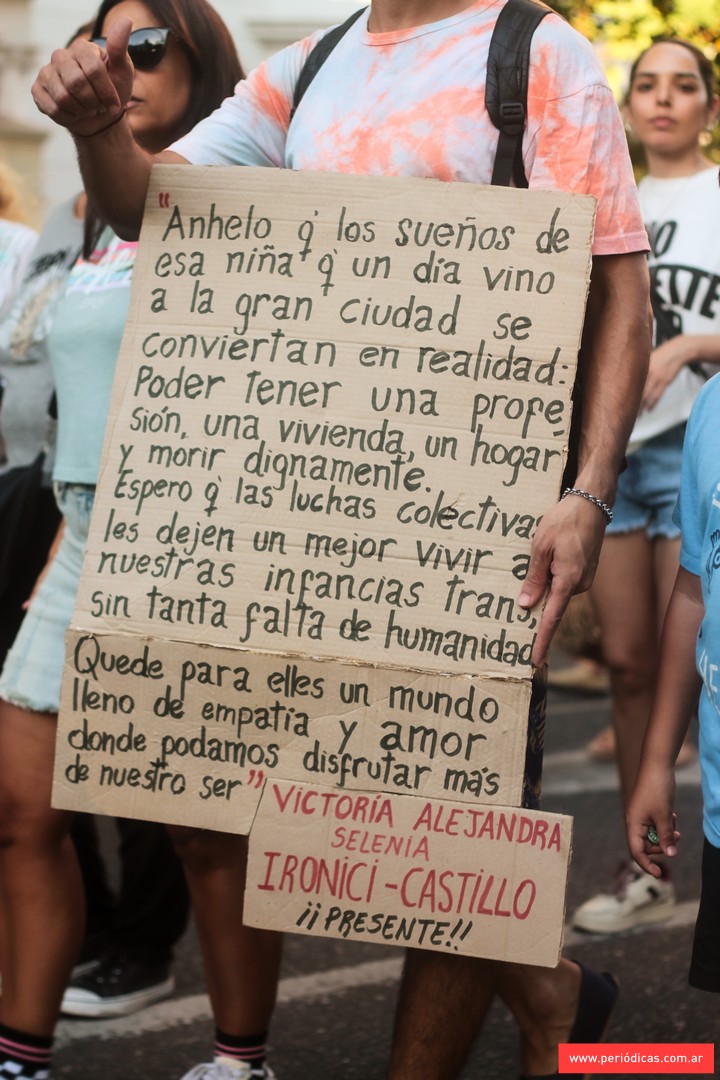 "Anhelo q' los sueños de
esa niña q' un día vino
a la gran ciudad se
conviertan en realidad:
Poder tener una profe
sión, una vivienda, un hogar
y morir dignamente.
Espero q' las luchas colectivas
les dejen un mejor vivir a
nuestras infancias trans,
sin tanta falta de humanidad
Quede para elles un mundo
lleno de empatía y amor
donde podamos disfrutar más
de nuestro ser"
VICTORIA ALEJANDRA
SELENIA
IRONICI-CASTILLO
¡¡PRESENTE!!
NO
www.periódicas.com.ar